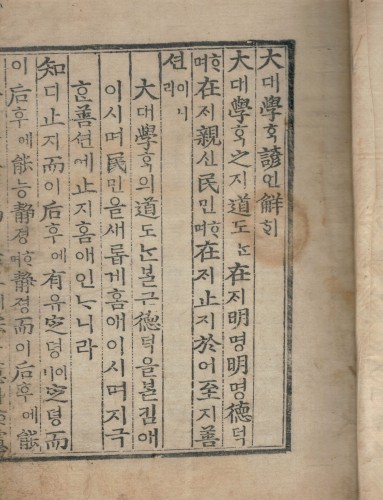 大대學ᄒᆞᆨ諺언解ᄒᆡ
大대學ᄒᆞᆨ之지道도ᄂᆞᆫ在ᄌᆡ明명明명德덕
ᄒᆞ며在ᄌᆡ親신民민ᄒᆞ며在ᄌᆡ止지於어至지善
션이니라
大대學ᄒᆞᆨ의道도ᄂᆞᆫᄇᆞᆯᄀᆞᆫ德덕을ᄇᆞᆯ킴애
이시며民민을새롭게홈애이시며지극
ᄒᆞᆫ善션에止지홈애인ᄂᆞ니라
知디止지而이后후에有유定뎡이니定뎡而
이后후에能능靜졍ᄒᆞ며靜졍而이后후에能